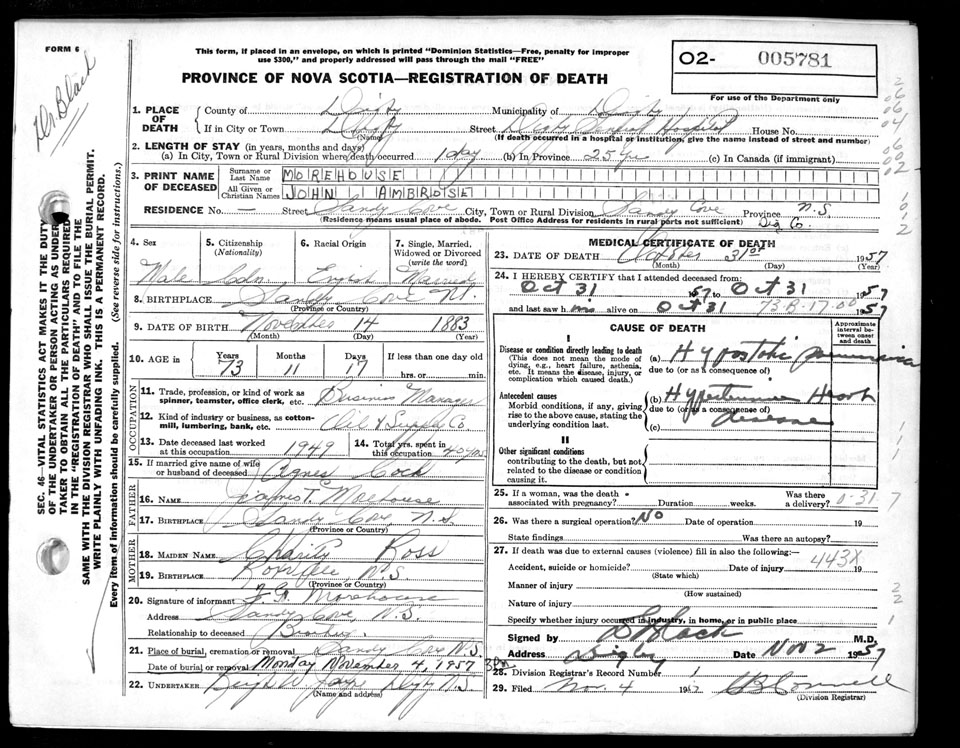 FORM 6
Dr. Black
This form, if placed in an envelope, on which is printed "Dominion Statistics—Free, penalty for improper
use $300," and properly addressed will pass through the mail "FREE"
PROVINCE OF NOVA SCOTIA—REGISTRATION OF DEATH
02- 005781
For use of the Department only
SEC. 46—VITAL STATISTICS ACT MAKES IT THE DUTY
OF THE UNDERTAKER OR PERSON ACTING AS UNDER
TAKER TO OBTAIN ALL THE PARTICULARS REQUIRED
IN THE "REGISTRATION OF DEATH" AND TO FILE THE
SAME WITH THE DIVISION REGISTRAR WHO SHALL ISSUE THE BURIAL PERMIT.
WRITE PLAINLY WITH UNFADING INK. THIS IS A PERMANENT RECORD.
Every item of information should be carefully supplied. (See reverse side for instructions.)
1. PLACE OF DEATH County of Digby Municipality of Digby
If in City or Town Digby Street Digby General Hospital House No.
(Name) (If death occurred in a hospital or institution, give the name instead of street and number)
2. LENGTH OF STAY (in years, months and days)
(a) In City, Town or Rural Division where death occurred 1 day (b) In Province 25 yrs (c) In Canada (if immigrant)
3. PRINT NAME OF DECEASED Surname or Last Name MOREHOUSE
All Given or Christian Names JOHN AMBROSE
RESIDENCE No. — Street Sandy Cove City, Town or Rural Division Sandy Cove Province N.S.
(Residence means usual place of abode. Post Office Address for residents in rural parts not sufficient) Dig Co.
4. Sex 5. Citizenship (Nationality) 6. Racial Origin 7. Single, Married, Widowed or Divorced (write the word)
Male Cdn. English Married
8. BIRTHPLACE Sandy Cove N.S.
(Province or Country)
9. DATE OF BIRTH November 14 1883
(Month) (Day) (Year)
10. AGE in Years Months Days If less than one day old
73 11 17 hrs. or min.
OCCUPATION
11. Trade, profession, or kind of work as spinner, teamster, office clerk, etc. Business Manager
12. Kind of industry or business, as cotton-mill, lumbering, bank, etc. Oil & Supply Co
13. Date deceased last worked at this occupation 1949 14. Total yrs. spent in this occupation 40 yrs
15. If married give name of wife or husband of deceased Agnes Cock
FATHER
16. NAME James T. Morehouse
17. BIRTHPLACE Sandy Cove, N.S.
(Province or Country)
MOTHER
18. MAIDEN NAME Charity Ross
19. BIRTHPLACE N.S.
(Province or Country)
20. Signature of informant Morehouse
Address Sandy Cove, N.S.
Relationship to deceased Brother
21. Place of burial, cremation or removal Sandy Cove N.S.
Date of burial or removal Monday November 4, 1957 3 Pm
22. UNDERTAKER Digby N.S.
(Name and address)
MEDICAL CERTIFICATE OF DEATH
23. DATE OF DEATH October 31st 1957
(Month) (Day) (Year)
24. I HEREBY CERTIFY that I attended deceased from:
Oct 31 57 to Oct 31 1957
and last saw him alive on Oct 31 1957
73-B-17-00
CAUSE OF DEATH
Approximate interval between onset and death
I
Disease or condition directly leading to death
(This does not mean the mode of dying, e.g., heart failure, asthenia, etc. It means the disease, injury, or complication which caused death.)
(a) Hypostatic pneumonia
due to (or as a consequence of)
Antecedent causes
Morbid conditions, if any, giving rise to the above cause, stating the underlying condition last.
(b) Hypertensive Heart
due to (or as a consequence of)
disease
(c)
II
Other significant conditions
contributing to the death, but not related to the disease or condition causing it
25. If a woman, was the death associated with pregnancy? Duration weeks. Was there a delivery?
0-31
26. Was there a surgical operation? No Date of operation 19
State findings Was there an autopsy?
27. If death was due to external causes (violence) fill in also the following:—
Accident, suicide or homicide? Date of injury 19
443X
(State which)
Manner of injury
(How sustained)
Nature of injury
Specify whether injury occurred in industry, in home, or in public place
Signed by Black M.D.
Address Digby Date Nov 2 1957
28. Division Registrar's Record Number 1
29. Filed Nov. 4 19
(Division Registrar)